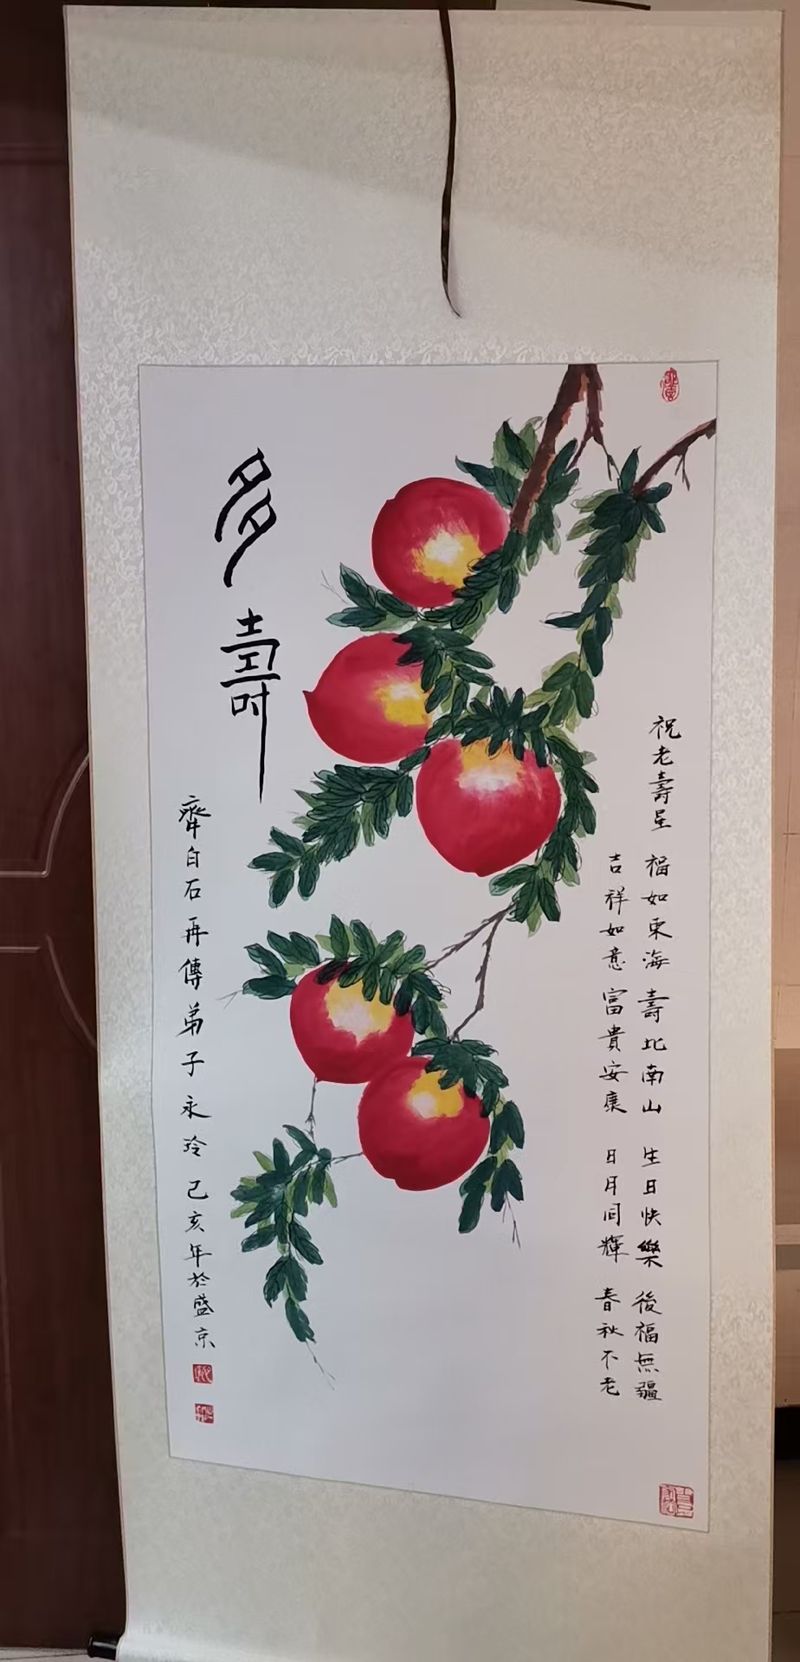 多壽
祝老壽星 福如東海 壽比南山 生日快樂 後福無疆
吉祥如意 富貴安康 日月同輝 春秋不老
齊白石再傳弟子永玲己亥年於盛京